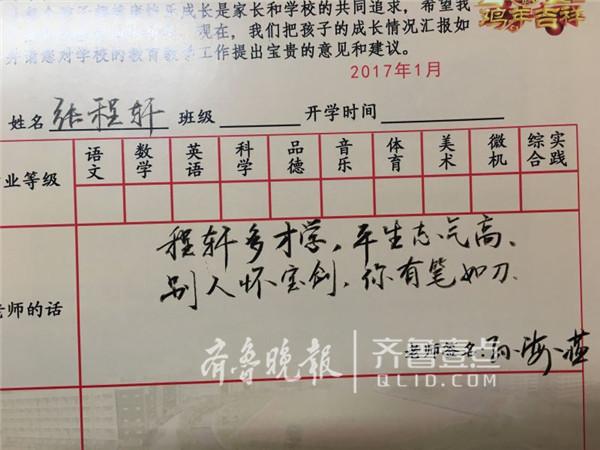 快乐成长是家长和学校的共同追求,希望我
现在,我们把孩子的成长情况汇报如
对学校的教育教学工作提出宝贵的意见和建议。
鸡年吉祥
2017年1月
姓名 张程轩 班级 开学时间
业等级 语文 数学 英语 科学 品德 音乐 体育 美术 微机 综合实践
程轩多才学,平生志气高、
老师的话
别人怀宝剑,你有笔如刀.
老师签名:孙海燕
齐鲁晚报 齐鲁壹点
QLID.COM